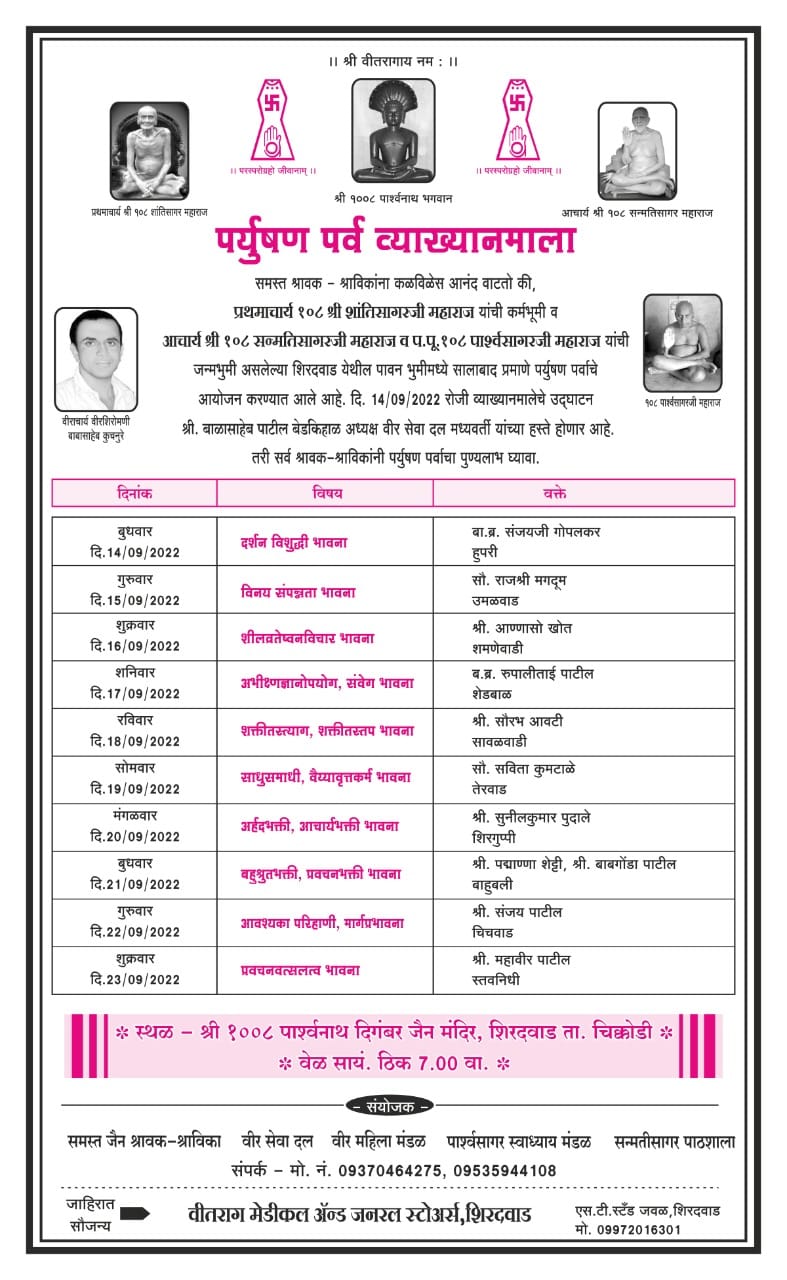 ।। श्री वीतरागाय नम : ।।
।। परस्परोग्रहो जीवानाम् ।।
।। परस्परोग्रहो जीवानाम् ।।
प्रथमाचार्य श्री १०८ शांतिसागर महाराज
श्री १००८ पार्श्वनाथ भगवान
आचार्य श्री १०८ सन्मतिसागर महाराज
पर्युषण पर्व व्याख्यानमाला
समस्त श्रावक - श्राविकांना कळविळेस आनंद वाटतो की,
प्रथमाचार्य १०८ श्री शांतिसागरजी महाराज यांची कर्मभूमी व
आचार्य श्री १०८ सन्मतिसागरजी महाराज व प.पू.१०८ पार्श्वसागरजी महाराज यांची
जन्मभुमी असलेल्या शिरदवाड येथील पावन भुमीमध्ये सालाबाद प्रमाणे पर्युषण पर्वाचे
आयोजन करण्यात आले आहे. दि. 14/09/2022 रोजी व्याख्यानमालेचे उद्घाटन
श्री. बाळासाहेब पाटील बेडकिहाळ अध्यक्ष वीर सेवा दल मध्यवर्ती यांच्या हस्ते होणार आहे.
तरी सर्व श्रावक-श्राविकांनी पर्युषण पर्वाचा पुण्यलाभ घ्यावा.
वीराचार्य वीरशिरोमणी
बाबासाहेब कुचनुरे
१०८ पार्श्वसागरजी महाराज
दिनांक विषय वक्ते
बुधवार
दि.14/09/2022
दर्शन विशुद्धी भावना
बा.ब्र. संजयजी गोपलकर
हुपरी
गुरुवार
दि.15/09/2022
विनय संपन्नता भावना
सौ. राजश्री मगदूम
उमळवाड
शुक्रवार
दि.16/09/2022
शीलव्रतेष्वनविचार भावना
श्री. आण्णासो खोत
शमणेवाडी
शनिवार
दि.17/09/2022
अभीक्ष्णज्ञानोपयोग, संवेग भावना
ब.ब्र. रुपालीताई पाटील
शेडबाळ
रविवार
दि.18/09/2022
शक्तीतस्त्याग, शक्तीतस्तप भावना
श्री. सौरभ आवटी
सावळवाडी
सोमवार
दि.19/09/2022
साधुसमाधी, वैय्यावृत्तकर्म भावना
सौ. सविता कुमटाळे
तेरवाड
मंगळवार
दि.20/09/2022
अर्हदभक्ती, आचार्यभक्ती भावना
श्री. सुनीलकुमार पुदाले
शिरगुप्पी
बुधवार
दि.21/09/2022
बहुश्रुतभक्ती, प्रवचनभक्ती भावना
श्री. पद्माण्णा शेट्टी, श्री. बाबगोंडा पाटील
बाहुबली
गुरुवार
दि.22/09/2022
आवश्यका परिहाणी, मार्गप्रभावना
श्री. संजय पाटील
चिचवाड
शुक्रवार
दि.23/09/2022
प्रवचनवत्सलत्व भावना
श्री. महावीर पाटील
स्तवनिधी
* स्थळ - श्री १००८ पार्श्वनाथ दिगंबर जैन मंदिर, शिरदवाड ता. चिक्कोडी *
* वेळ सायं. ठिक 7.00 वा. *
- संयोजक -
समस्त जैन श्रावक-श्राविका वीर सेवा दल वीर महिला मंडळ पार्श्वसागर स्वाध्याय मंडळ सन्मतीसागर पाठशाला
संपर्क - मो. नं. 09370464275, 09535944108
जाहिरात
सौजन्य
वीतराग मेडीकल ॲन्ड जनरल स्टोअर्स,शिरदवाड
एस.टी.स्टँड जवळ,शिरदवाड
मो. 09972016301